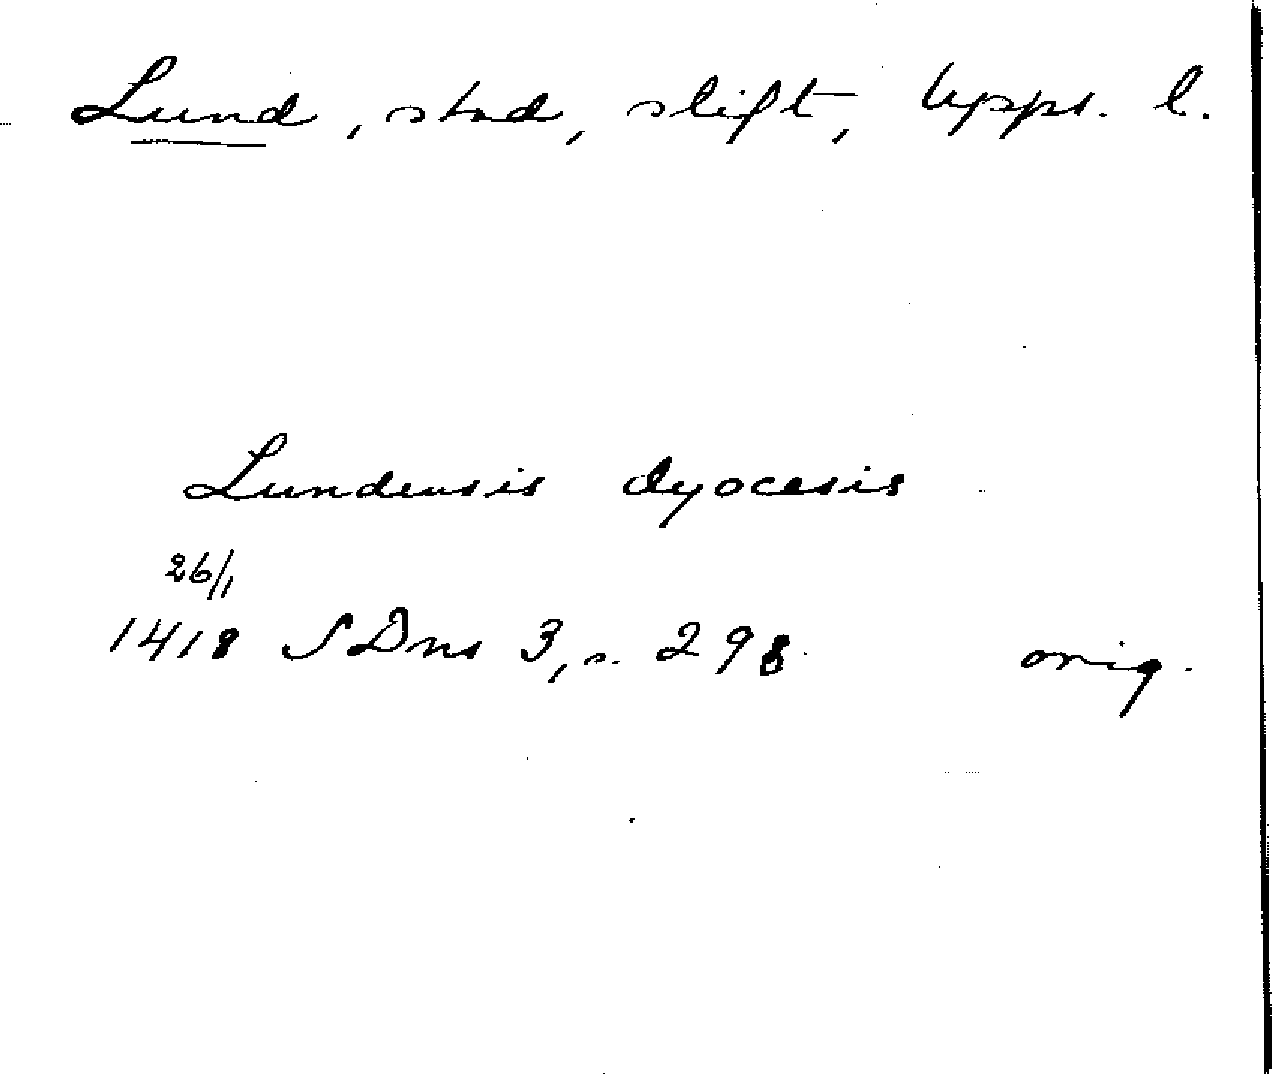 Lund, stad, stift, Upps. l.
Lundensis dyocesis
26/1
1418 SDns 3, s. 298. orig.